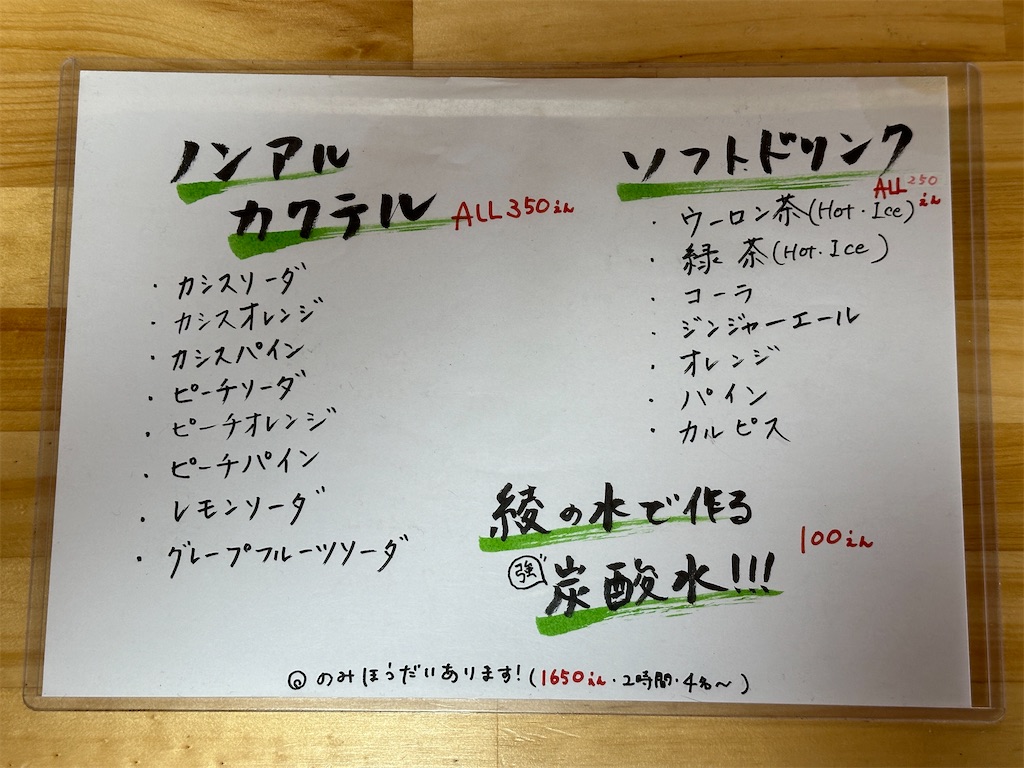 ノンアル
カクテル ALL350えん
・カシスソーダ
・カシスオレンジ
・カシスパイン
・ピーチソーダ
・ピーチオレンジ
・ピーチパイン
・レモンソーダ
・グレープフルーツソーダ
ソフトドリンク
ALL250えん
・ウーロン茶(Hot・Ice)
・緑茶(Hot・Ice)
・コーラ
・ジンジャーエール
・オレンジ
・パイン
・カルピス
綾の水で作る
強炭酸水!!! 100えん
のみほうだいあります!(1650えん・2時間・4名〜)